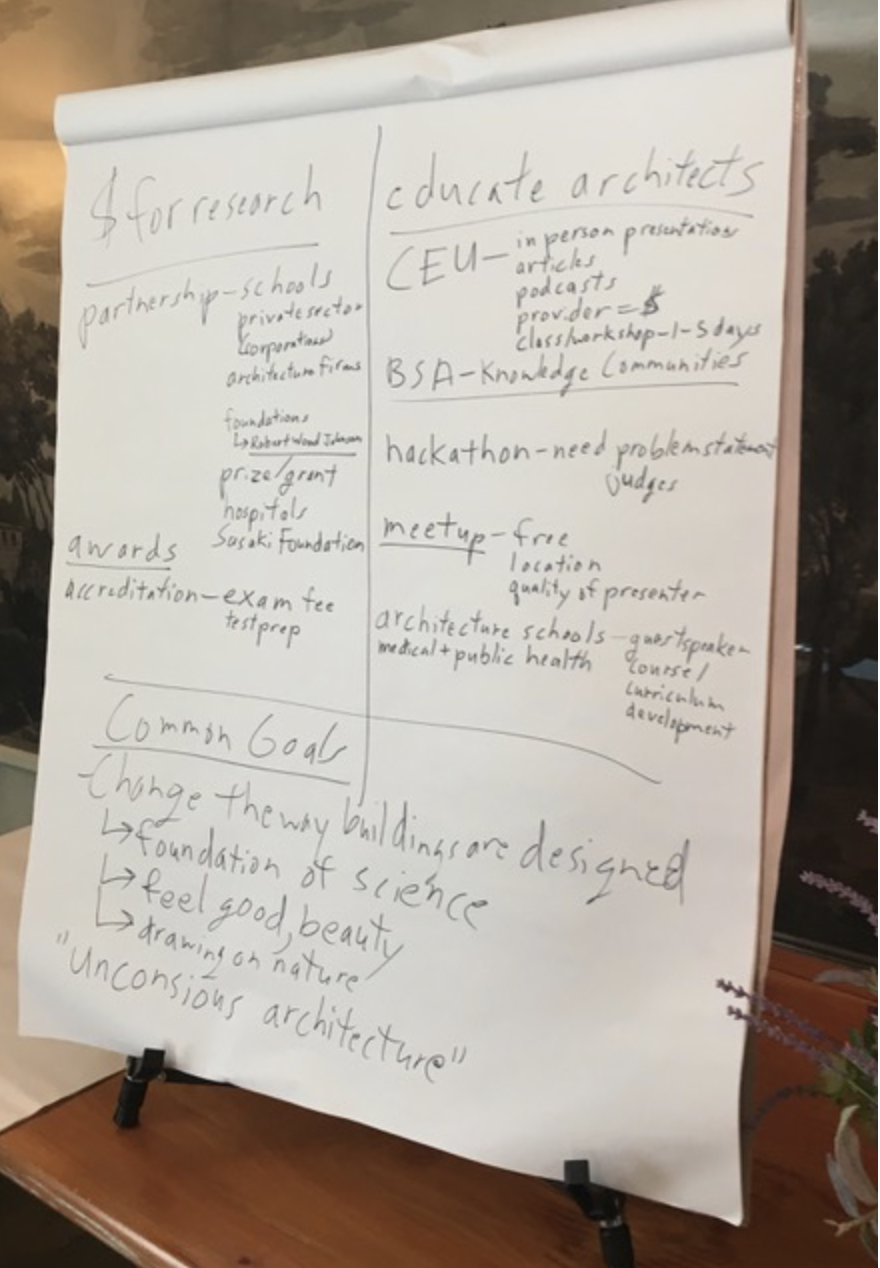 $ for research
partnership - schools
private sector
corporations
architecture firms
foundations
↳ Robert Wood Johnson
prize/grant
hospitals
Sasaki Foundation
awards
accreditation - exam fee
test prep
educate architects
CEU - in person presentation
articles
podcasts
provider = $
class/workshop - 1-5 days
BSA - Knowledge Communities
hackathon - need problem statement
judges
meetup - free
location
quality of presenter
architecture schools - guest speaker
medical + public health course/
curriculum
development
Common Goals
- Change the way buildings are designed
↳ foundation of science
↳ feel good, beauty
↳ drawing on nature
"Unconsious architecture"